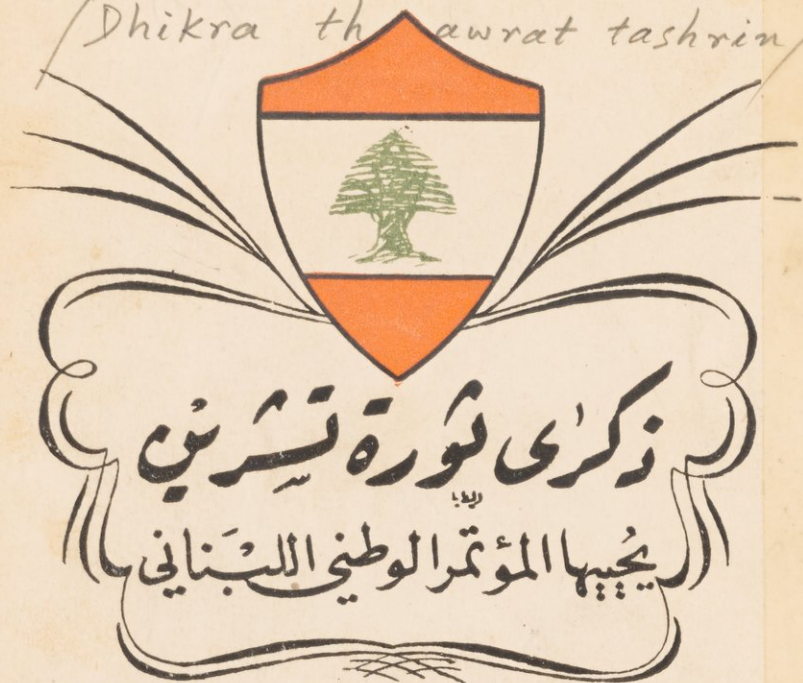 Dhikra thawrat tashrin
ذكرى ثورة تِشرين
يُحييها المؤتمر الوطني اللبْنَاني